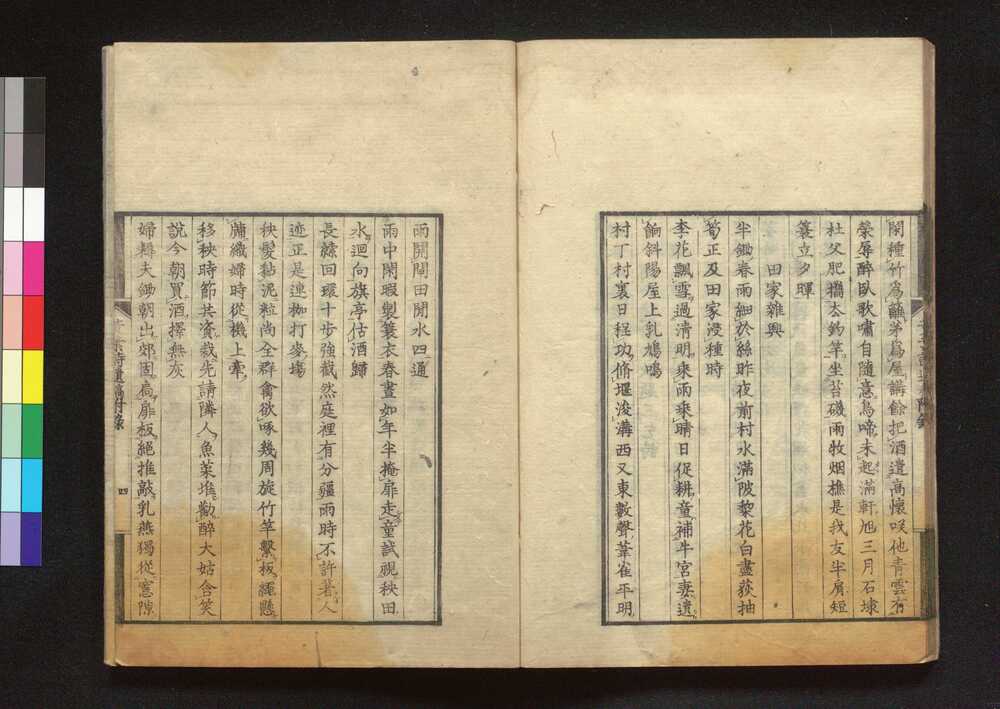 閑種竹爲籬茅爲屋講餘把酒遣高懷咲他靑雲有
榮辱醉臥歌嘯自隨意鳥啼未起滿軒旭三月石埭
杜父肥攜去釣竿坐苔磯雨牧烟樵是我友半肩短
簑立夕暉
田家雜興
半鋤春雨細於絲昨夜前村水滿陂藜花白盡荻抽
筍正及田家浸種時
李花飄雪過淸明乘雨乘晴日促耕童補牛宮妻遺
餉斜陽屋上乳鳩鳴
村丁村裏日程功脩堰浚溝西又東數聲葦雀平明
雨開閘田開水四通
雨中閑暇製簑衣春晝如年半掩扉走童試視秧田
水迴向旗亭估酒歸
長繩回環十步強截然庭裡有分疆雨時不許著人
迹正是連枷打麥場
秧髮黏泥粒尚全群禽欲啄幾周旋竹竿繫板繩懸
牖織婦時從機上牽
移秧時節共資栽先請隣人魚菜堆勸醉大姑含笑
說今朝買酒擇無灰
婦耨夫鋤朝出郊固扃扉板絕推敲乳燕獨從窓隙
詩遺稿附錄
四